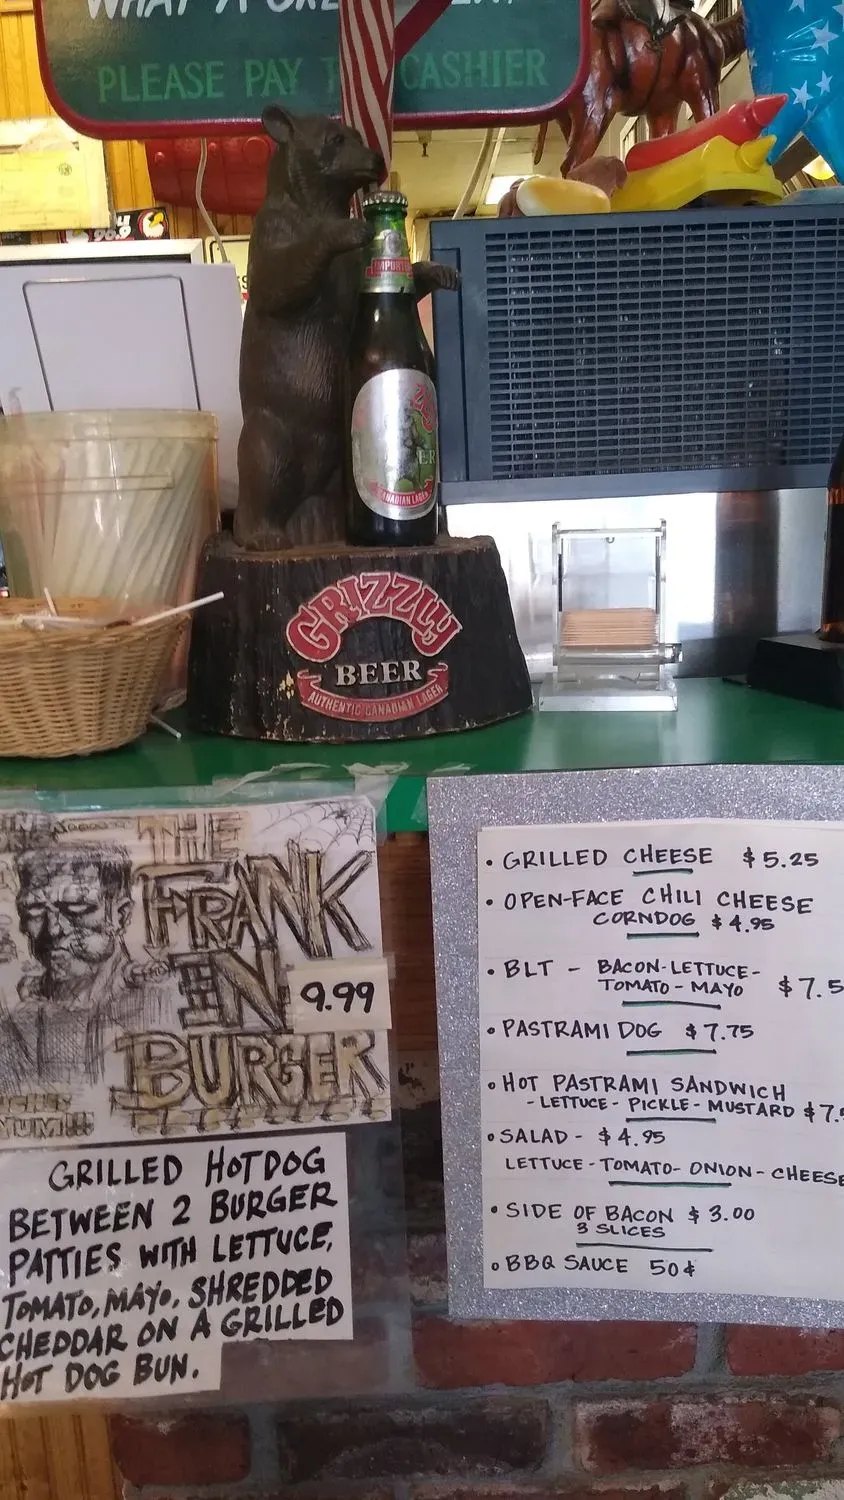 WHAT A
PLEASE PAY CASHIER
90.9
IMPORTED
CANADIAN LAGER
GRIZZLY
BEER
AUTHENTIC CANADIAN LAGER
THE
FRANK
IN
9.99
BURGER
YUM!!!
GRILLED HOTDOG
BETWEEN 2 BURGER
PATTIES WITH LETTUCE,
TOMATO, MAYO, SHREDDED
CHEDDAR ON A GRILLED
HOT DOG BUN.
• GRILLED CHEESE $5.25
• OPEN-FACE CHILI CHEESE
CORNDOG $4.95
• BLT - BACON-LETTUCE-
TOMATO-MAYO $7.5
• PASTRAMI DOG $7.75
• HOT PASTRAMI SANDWICH
- LETTUCE - PICKLE - MUSTARD $7.
• SALAD - $4.95
LETTUCE - TOMATO - ONION - CHEESE
• SIDE OF BACON $3.00
3 SLICES
• BBQ SAUCE 50¢